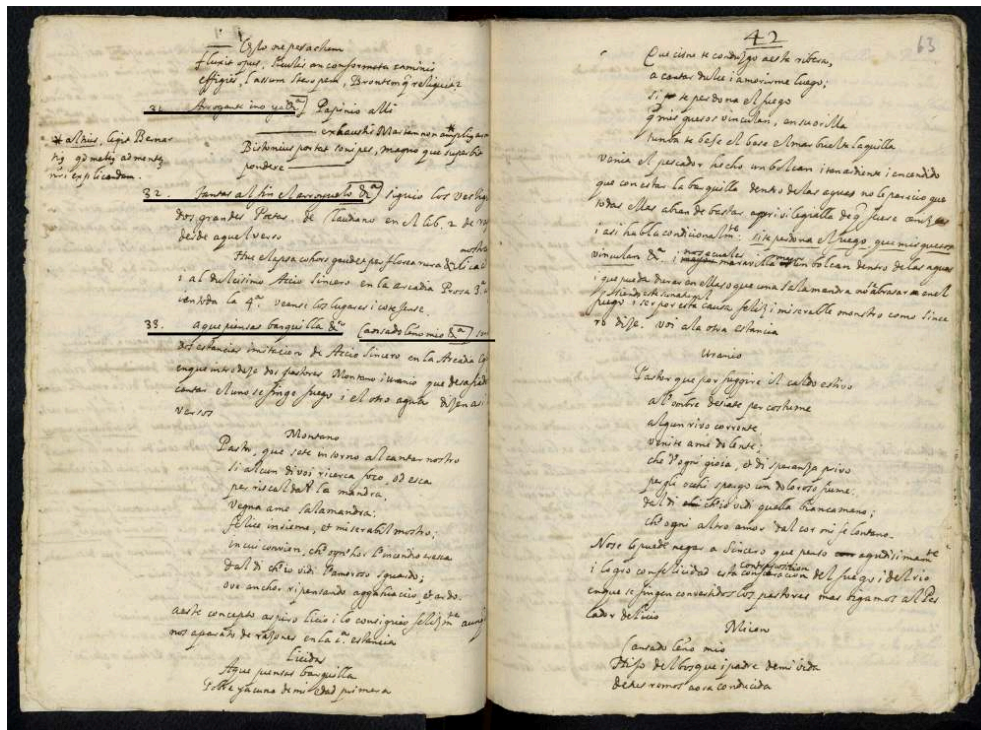 fluxit opus, Siculis an conformata caminis
effigies, lassum Steropem, Brontemq. reliquit?
31. Arrogante ino ya &ª] Papinio alli
exhausti Martem non amplius
Bistonius portat sonipes, magnoque superbit
pondere
* altius, legit Bernar
32. Iantas al fin el arroyuelo &ª] siguio los vestig
dos grandes Poetas. de Claudiano en el lib. 2 de
desde aquel verso
Huc elapsa cohors gaudet per florea rura &
i al dulcisimo Accio Sincero en la Arcadia Prosa 3ª
en toda la 4ª. veansi los lugares i cotejense.
33. aque piensas barquilla &ª (cansado leño mio &ª] son
dos estancias imitacion de Accio Sincero en la Arcadia
en que introduze dos pastores Montano i Uranio que desafiados
cantar el uno se finge fuego i el otro agua dizen asi
versos
Montano
Pastor, que sete intorno al cantar nostro
si alcun di voi ricerca foco, od esca
per riscaldar la mandra,
vegna a me salamandra;
felice insieme, et miserabil mostro;
in cui convien, ch'ognhor l'incendio cresca
dal di ch'io vidi l'amoroso sguardo;
ove anchor ripensando agghiaccio, et ardo.
a este concepto aspiro Licio i lo consiguio felizmte
nos aparato de razones en la 1ª. estancia
Licidas
Aque piensas barquilla
Pobre ya cuna de mi edad primera
42
63
Que cisne te conduzgo a este ribera,
a cantar dulce i a morirme luego;
si te perdona el fuego
q mis guesos vinculan, en su orilla
tumba te bese el mar buelta la quilla
venia el pescador hecho un bolcan i tan ardiente i encendido
que con estar la barquilla dentro de las aguas no le parecio que
todas ellas abian de bastar
i asi habla condicionalmte. si te perdona el fuego, que mis guesos
vinculan &ª. i maravilla un bolcan dentro de las aguas
i que pueda durar en ellas o que una salamandra no se abrasara en el
fuego i ser por esta causa feliz i miserable monstro como Since
ro dize. voi a la otra estancia
Uranio
Pastor que per fuggire il caldo estivo
all'ombre desiate per costume
alcun rivo corrente
venite a me dolente;
che d'ogni gioia, et di speranza privo
per gli occhi spargo un doloroso fiume;
dal di ch'io vidi quella bianca mano;
ch'ogni altro amor dal cor mi fe lontano.
No se le puede negar a Sincero que penso agudisimamte
i logro con felicidad esta contraposition del fuego i del rio
en que se fingen convertidos los pastores mas bigamos al Pes
cador de Licio
Micon
Cansado leño mio
Hijo del bosque i padre de mi vida
de tus remos aora conducida